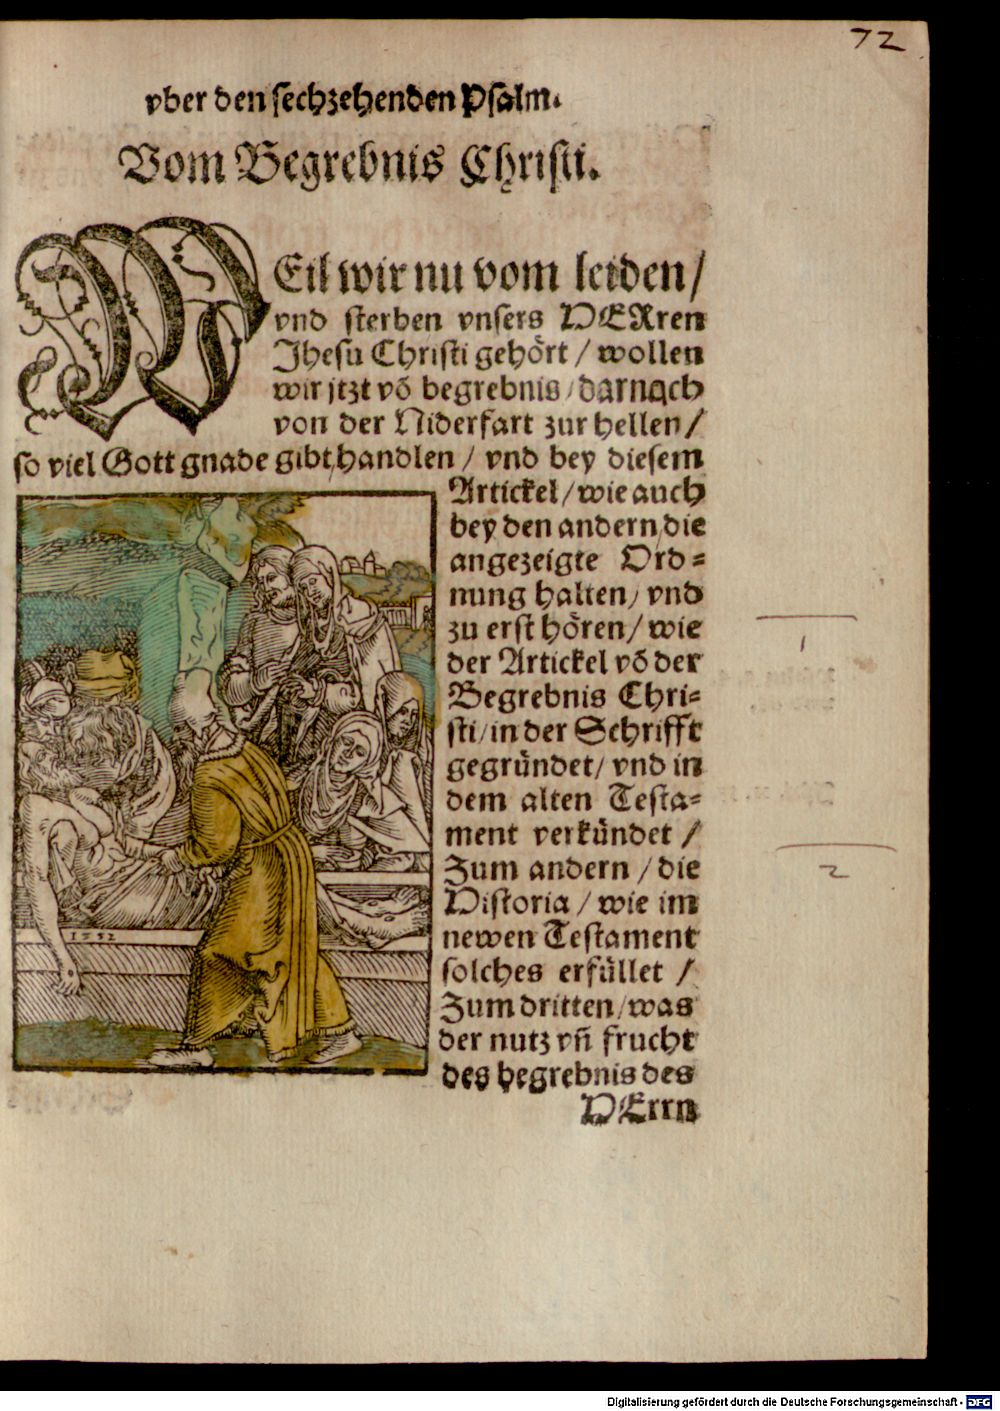 72
vber den sechzehenden Psalm.
Vom Begrebnis Christi.
WEil wir nu vom leiden/
vnd sterben vnsers HERren
Jhesu Christi gehört / wollen
wir jtzt võ begrebnis/darnach
von der Niderfart zur hellen/
so viel Gott gnade gibt/handlen / vnd bey diesem
Artickel/wie auch
bey den andern/die
angezeigte Ord=
nung halten/ vnd
zu erst hören/ wie
der Artickel võ der
Begrebnis Chri=
sti/in der Schrifft
gegründet/ vnd in
dem alten Testa=
ment verkündet /
Zum andern / die
Historia / wie im
newen Testament
solches erfüllet /
Zum dritten/was
der nutz vñ frucht
des begrebnis des
HErrn
1532
1
2
Digitalisierung gefördert durch die Deutsche Forschungsgemeinschaft - DFG